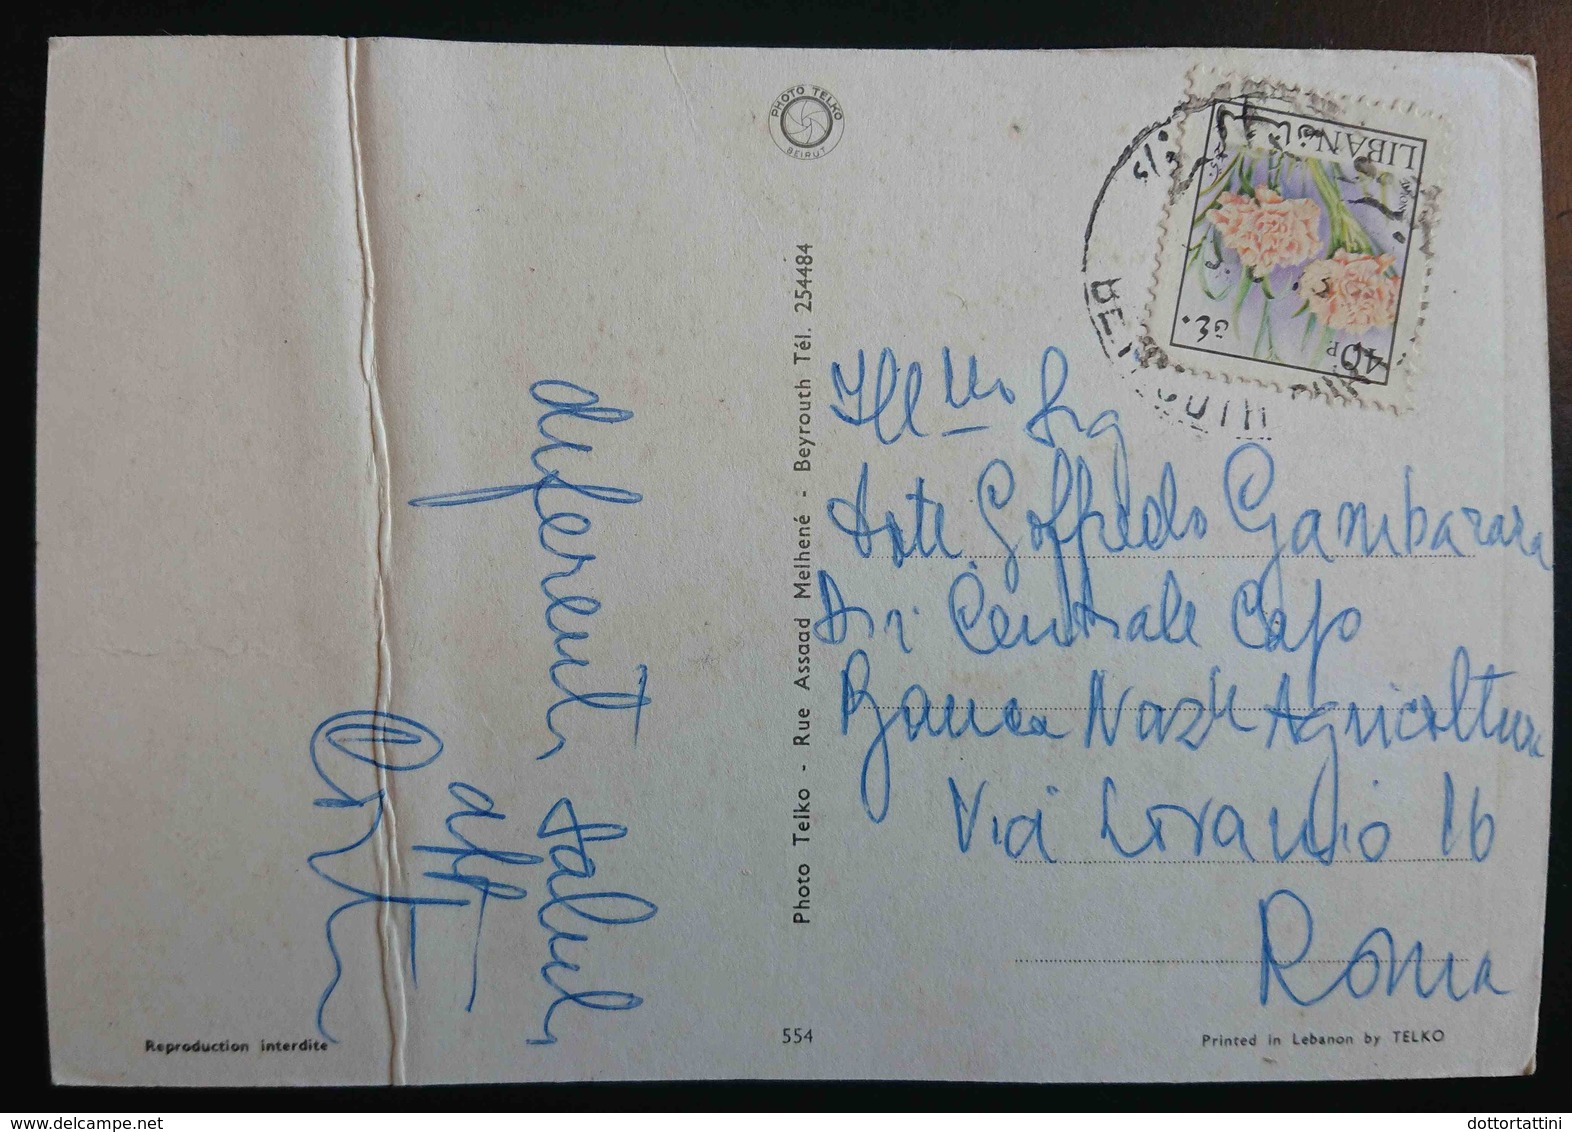 PHOTO TELKO
BEIRUT
LIBAN
40P
Photo Telko - Rue Assaad Melhené - Beyrouth Tél. 254484
deferenti saluti
Ill mo Sig
Dott. Goffredo Gambarara
Dir Centrale Capo
Banca Naz le Agricoltura
Via Lovanio 16
Roma
Reproduction interdite
554
Printed in Lebanon by TELKO
dottortattini